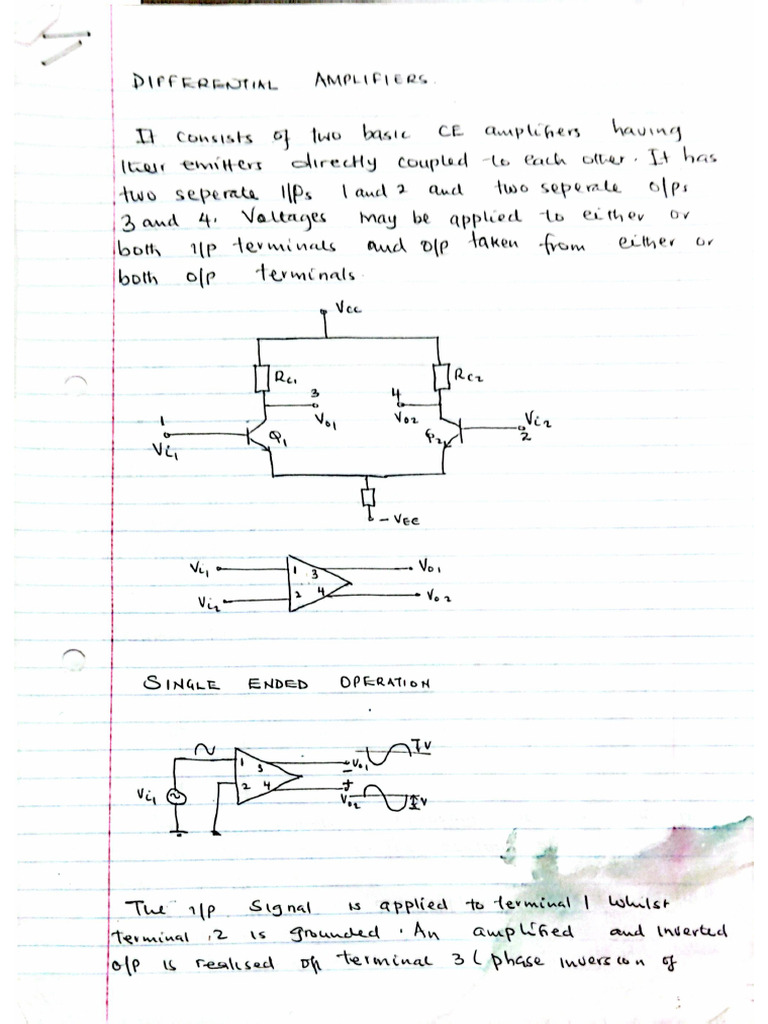 DIFFERENTIAL AMPLIFIERS.
It consists of two basic CE amplifiers having
their emitters directly coupled to each other. It has
two seperate I/Ps 1 and 2 and two seperate O/Ps
3 and 4. Voltages may be applied to either or
both I/P terminals and O/P taken from either or
both O/P terminals.
Vcc
RC1
RC2
3
4
1
Vo1
Vo2
Vi2
Vi1
Q1
Q2
2
-VEE
Vi1
1
3
Vo1
Vi2
2
4
Vo2
SINGLE ENDED OPERATION
V
1
3
Vo1
-
Vi1
2
4
+
Vo2
V
The I/P signal is applied to terminal 1 whilst
terminal 2 is grounded. An amplified and inverted
O/P is realised on terminal 3 (phase inversion of